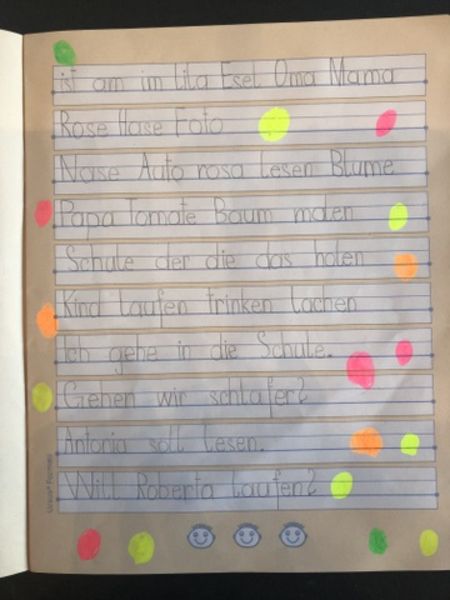 ist am im lila Esel Oma Mama
Rose Hase Foto
Nase Auto rosa lesen Blume
Papa Tomate Baum malen
Schule der die das holen
Kind laufen trinken lachen
Ich gehe in die Schule.
Gehen wir schlafen?
Antonia soll lesen.
Will Roberta laufen?